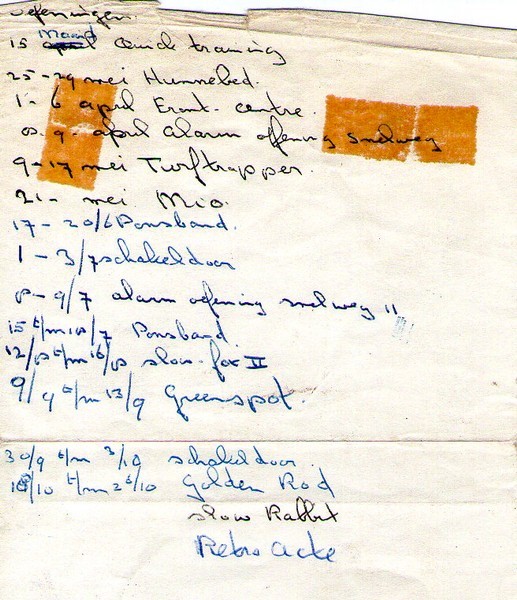 oefeningen.
15 Maart Quick training
25-29 mei Hunnebed.
1-6 april Eramt. centre.
8.9. april alarm oefening snelweg
9-17 mei Turftrapper.
21- mei Mio.
17-20/6 Ponsband.
1-3/7 schakeldoor
8-9/7 alarm oefening snelweg II
15 t/m 18/7 Ponsband.
12/8 t/m 16/8 slow-fox II
9/9 t/m 13/9 Greenspot.
30/9 t/m 3/10 schakeldoor.
/10 t/m 26/10 Golden Rod
slow Rabbit
Retro acte